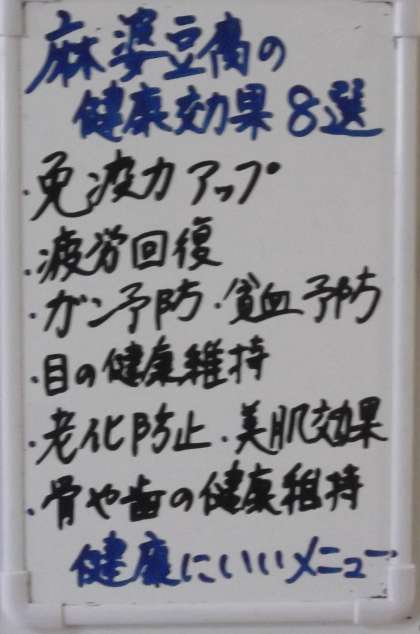 麻婆豆腐の
健康効果8選
・免疫力アップ
・疲労回復
・ガン予防・貧血予防
・目の健康維持
・老化防止・美肌効果
・骨や歯の健康維持
健康にいいメニュー